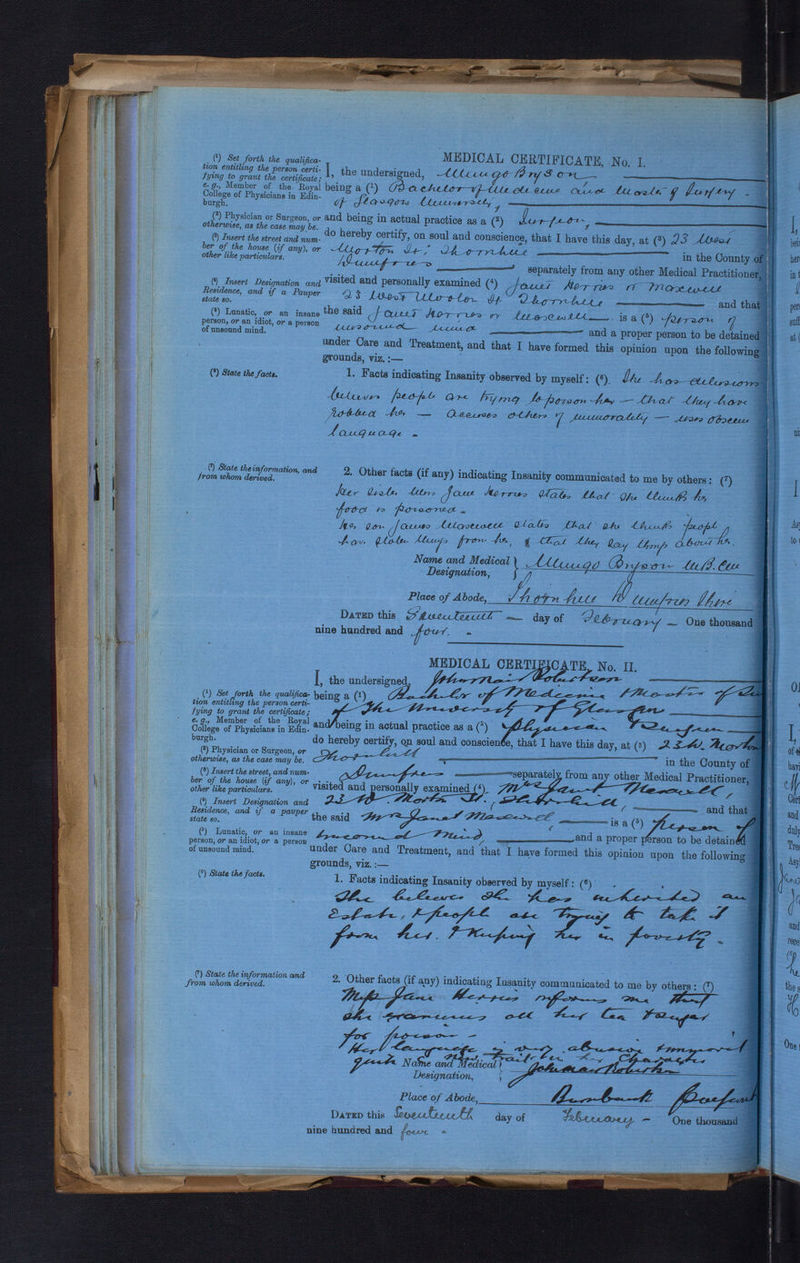 MEDICAL CERTIFICATE, No. I.
(¹) Set forth the qualifica-
tion entitling the person certi-
fying to grant the certificate;
e. g., Member of the Royal
College of Physicians in Edin-
burgh.
I, the undersigned, Mungo Bryson
being a (¹) Bachelor of Medicine and Master of Surgery
of Glasgow University,
(²) Physician or Surgeon, or
otherwise, as the case may be.
and being in actual practice as a (²) Surgeon,
(³) Insert the street and num-
ber of the house (if any), or
other like particulars.
do hereby certify, on soul and conscience, that I have this day, at (³) 23 West
Morton St; Thornhill in the County of
Dumfries separately from any other Medical Practitioner,
(⁴) Insert Designation and
Residence, and if a Pauper
state so.
visited and personally examined (⁴) Janet Herries or Maxwell
23 West Morton St Thornhill and that
(⁵) Lunatic, or an insane
person, or an idiot, or a person
of unsound mind.
the said Janet Herries or Maxwell is a (⁵) person of
unsound mind and a proper person to be detained
under Care and Treatment, and that I have formed this opinion upon the following
grounds, viz.:—
(⁶) State the facts.
1. Facts indicating Insanity observed by myself: (⁶) She has delusions
believes people are trying to poison her — that they have
robbed her — accuses others of immorality — uses obscene
language -
(⁷) State the information, and
from whom derived.
2. Other facts (if any) indicating Insanity communicated to me by others: (⁷)
Her sister Jane Herries states that she thinks her
food is poisoned -
Her son James Maxwell states that she thinks people
have stolen things from her, & that they say things about her.
Name and Medical
Designation, Mungo Bryson M.B. CM
Place of Abode, Thornhill Dumfries Shire
DATED this Seventeenth day of February One thousand
nine hundred and four. -
MEDICAL CERTIFICATE, No. II.
I, the undersigned, John Mair Robertson
(¹) Set forth the qualifica-
tion entitling the person certi-
fying to grant the certificate;
e. g., Member of the Royal
College of Physicians in Edin-
burgh.
being a (¹) Bachelor of Medicine & Master of Su
of the University of Glasgow
and being in actual practice as a (²) Physician & Surgeon
(²) Physician or Surgeon, or
otherwise, as the case may be.
do hereby certify, on soul and conscience, that I have this day, at (³) 23 W. Morton
Thornhill in the County of
(³) Insert the street, and num-
ber of the house (if any), or
other like particulars.
Dumfries separately from any other Medical Practitioner,
visited and personally examined (⁴) Mrs Janet Maxwell,
(⁴) Insert Designation and
Residence, and if a pauper
state so.
23 W. Morton St. Thornhill, and that
the said Mrs Janet Maxwell, is a (⁵) Person of
(⁵) Lunatic, or an insane
person, or an idiot, or a person
of unsound mind.
unsound Mind, and a proper person to be detained
under Care and Treatment, and that I have formed this opinion upon the following
grounds, viz.:—
(⁶) State the facts.
1. Facts indicating Insanity observed by myself: (⁶)
She believes she has inherited an
Estate, & people are trying to take it
from her. & Keeping her in poverty -
(⁷) State the information and
from whom derived.
2. Other facts (if any) indicating Insanity communicated to me by others: (⁷)
Miss Jane Herries informs me that
she examines all her tea & sugar
for poison -
Her language is very abusive & immoral
quite a new trait in her character
Name and Medical
Designation, John Mair Robertson
Place of Abode, Burnbank
DATED this Seventeenth day of February - One thousand
nine hundred and four -